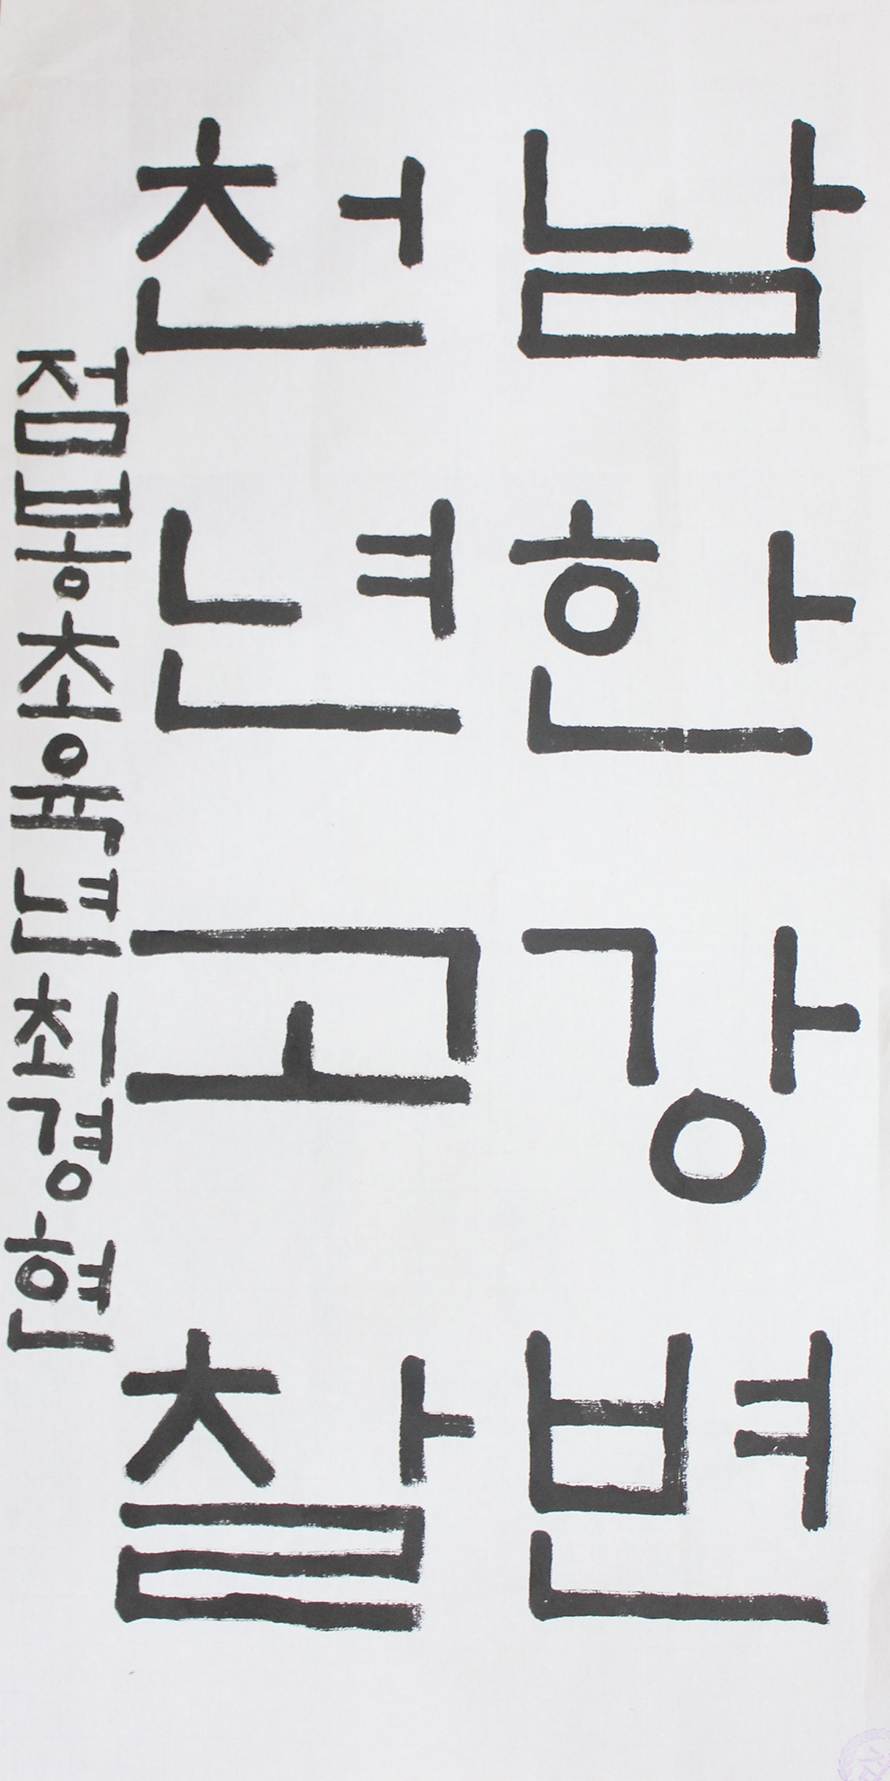 남한강변
천년고찰
점봉초육년최경현